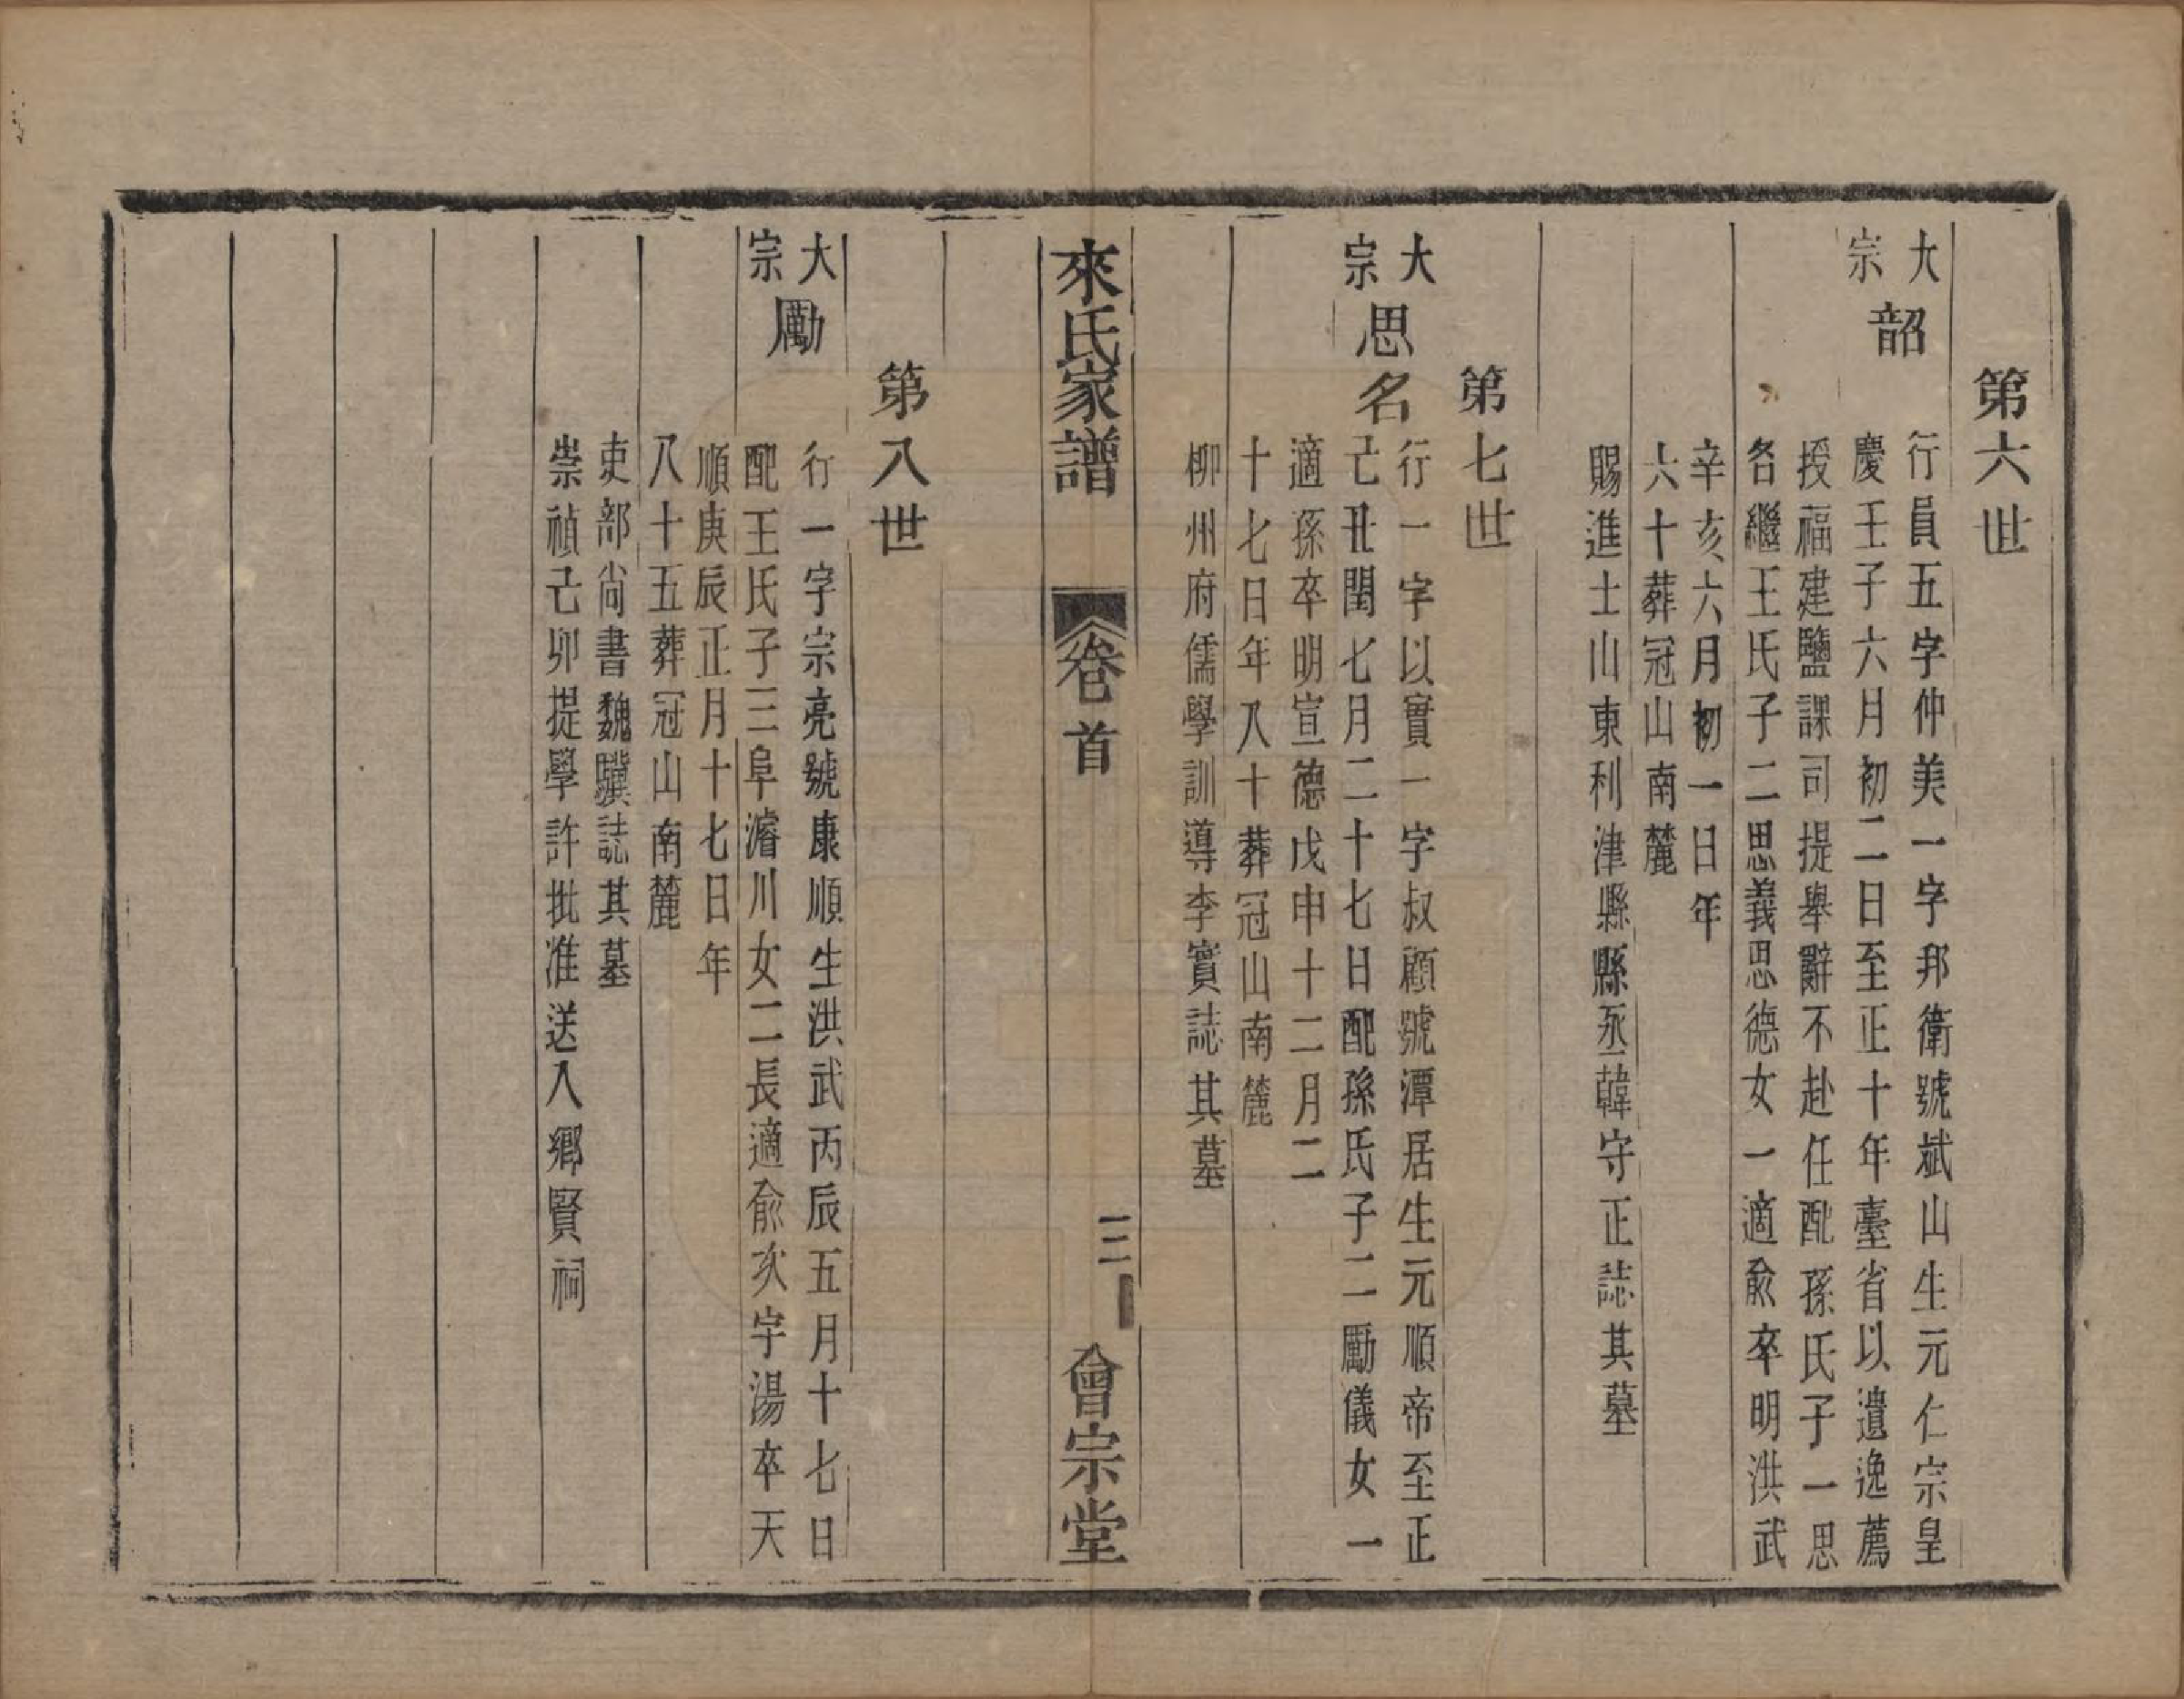 第六世
大宗
韶
行員五字仲美一字邦衛號斌山生元仁宗皇
慶壬子六月初二日至正十年臺省以遺逸薦
授福建鹽課司提舉辭不赴任配孫氏子一思
名繼王氏子二思義思德女一適俞卒明洪武
辛亥六月初一日年
六十葬冠山南麓
賜進士山東利津縣縣丞韓守正誌其墓
第七世
大宗
思名
行一字以實一字叔顧號潭居生元順帝至正
己丑閏七月二十七日配孫氏子二勵儀女一
適孫卒明宣德戊申十二月二
十七日年八十葬冠山南麓
柳州府儒學訓導李實誌其墓
來氏家譜
卷首
三
會宗堂
第八世
大宗
勵
行一字宗亮號康順生洪武丙辰五月十七日
配王氏子三阜濬川女二長適俞次字湯卒天
順庚辰正月十七日年
八十五葬冠山南麓
吏部尚書魏驥誌其墓
崇禎己卯提學許批准送入鄉賢祠